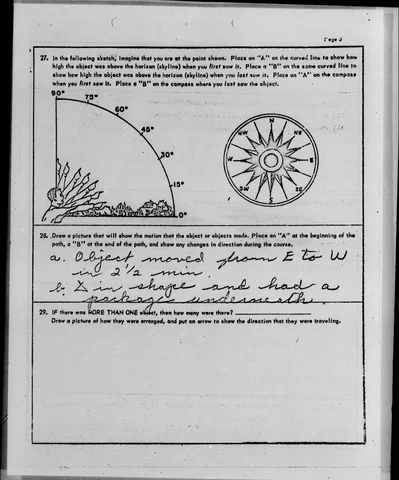 Page 3
27. In the following sketch, imagine that you are at the point shown. Place an "A" on the curved line to show how
high the object was above the horizon (skyline) when you first saw it. Place a "B" on the same curved line to
show how high the object was above the horizon (skyline) when you last saw it. Place an "A" on the compass
when you first saw it. Place a "B" on the compass where you last saw the object.
90°
75°
60°
45°
30°
15°
0°
N
NE
E
SE
S
SW
W
NW
28. Draw a picture that will show the motion that the object or objects made. Place an "A" at the beginning of the
path, a "B" at the end of the path, and show any changes in direction during the course.
a. Object moved from E to W
in 2 1/2 min.
b. Δ in shape and had a
package underneath.
29. IF there was MORE THAN ONE object, then how many were there?
Draw a picture of how they were arranged, and put an arrow to show the direction that they were traveling.